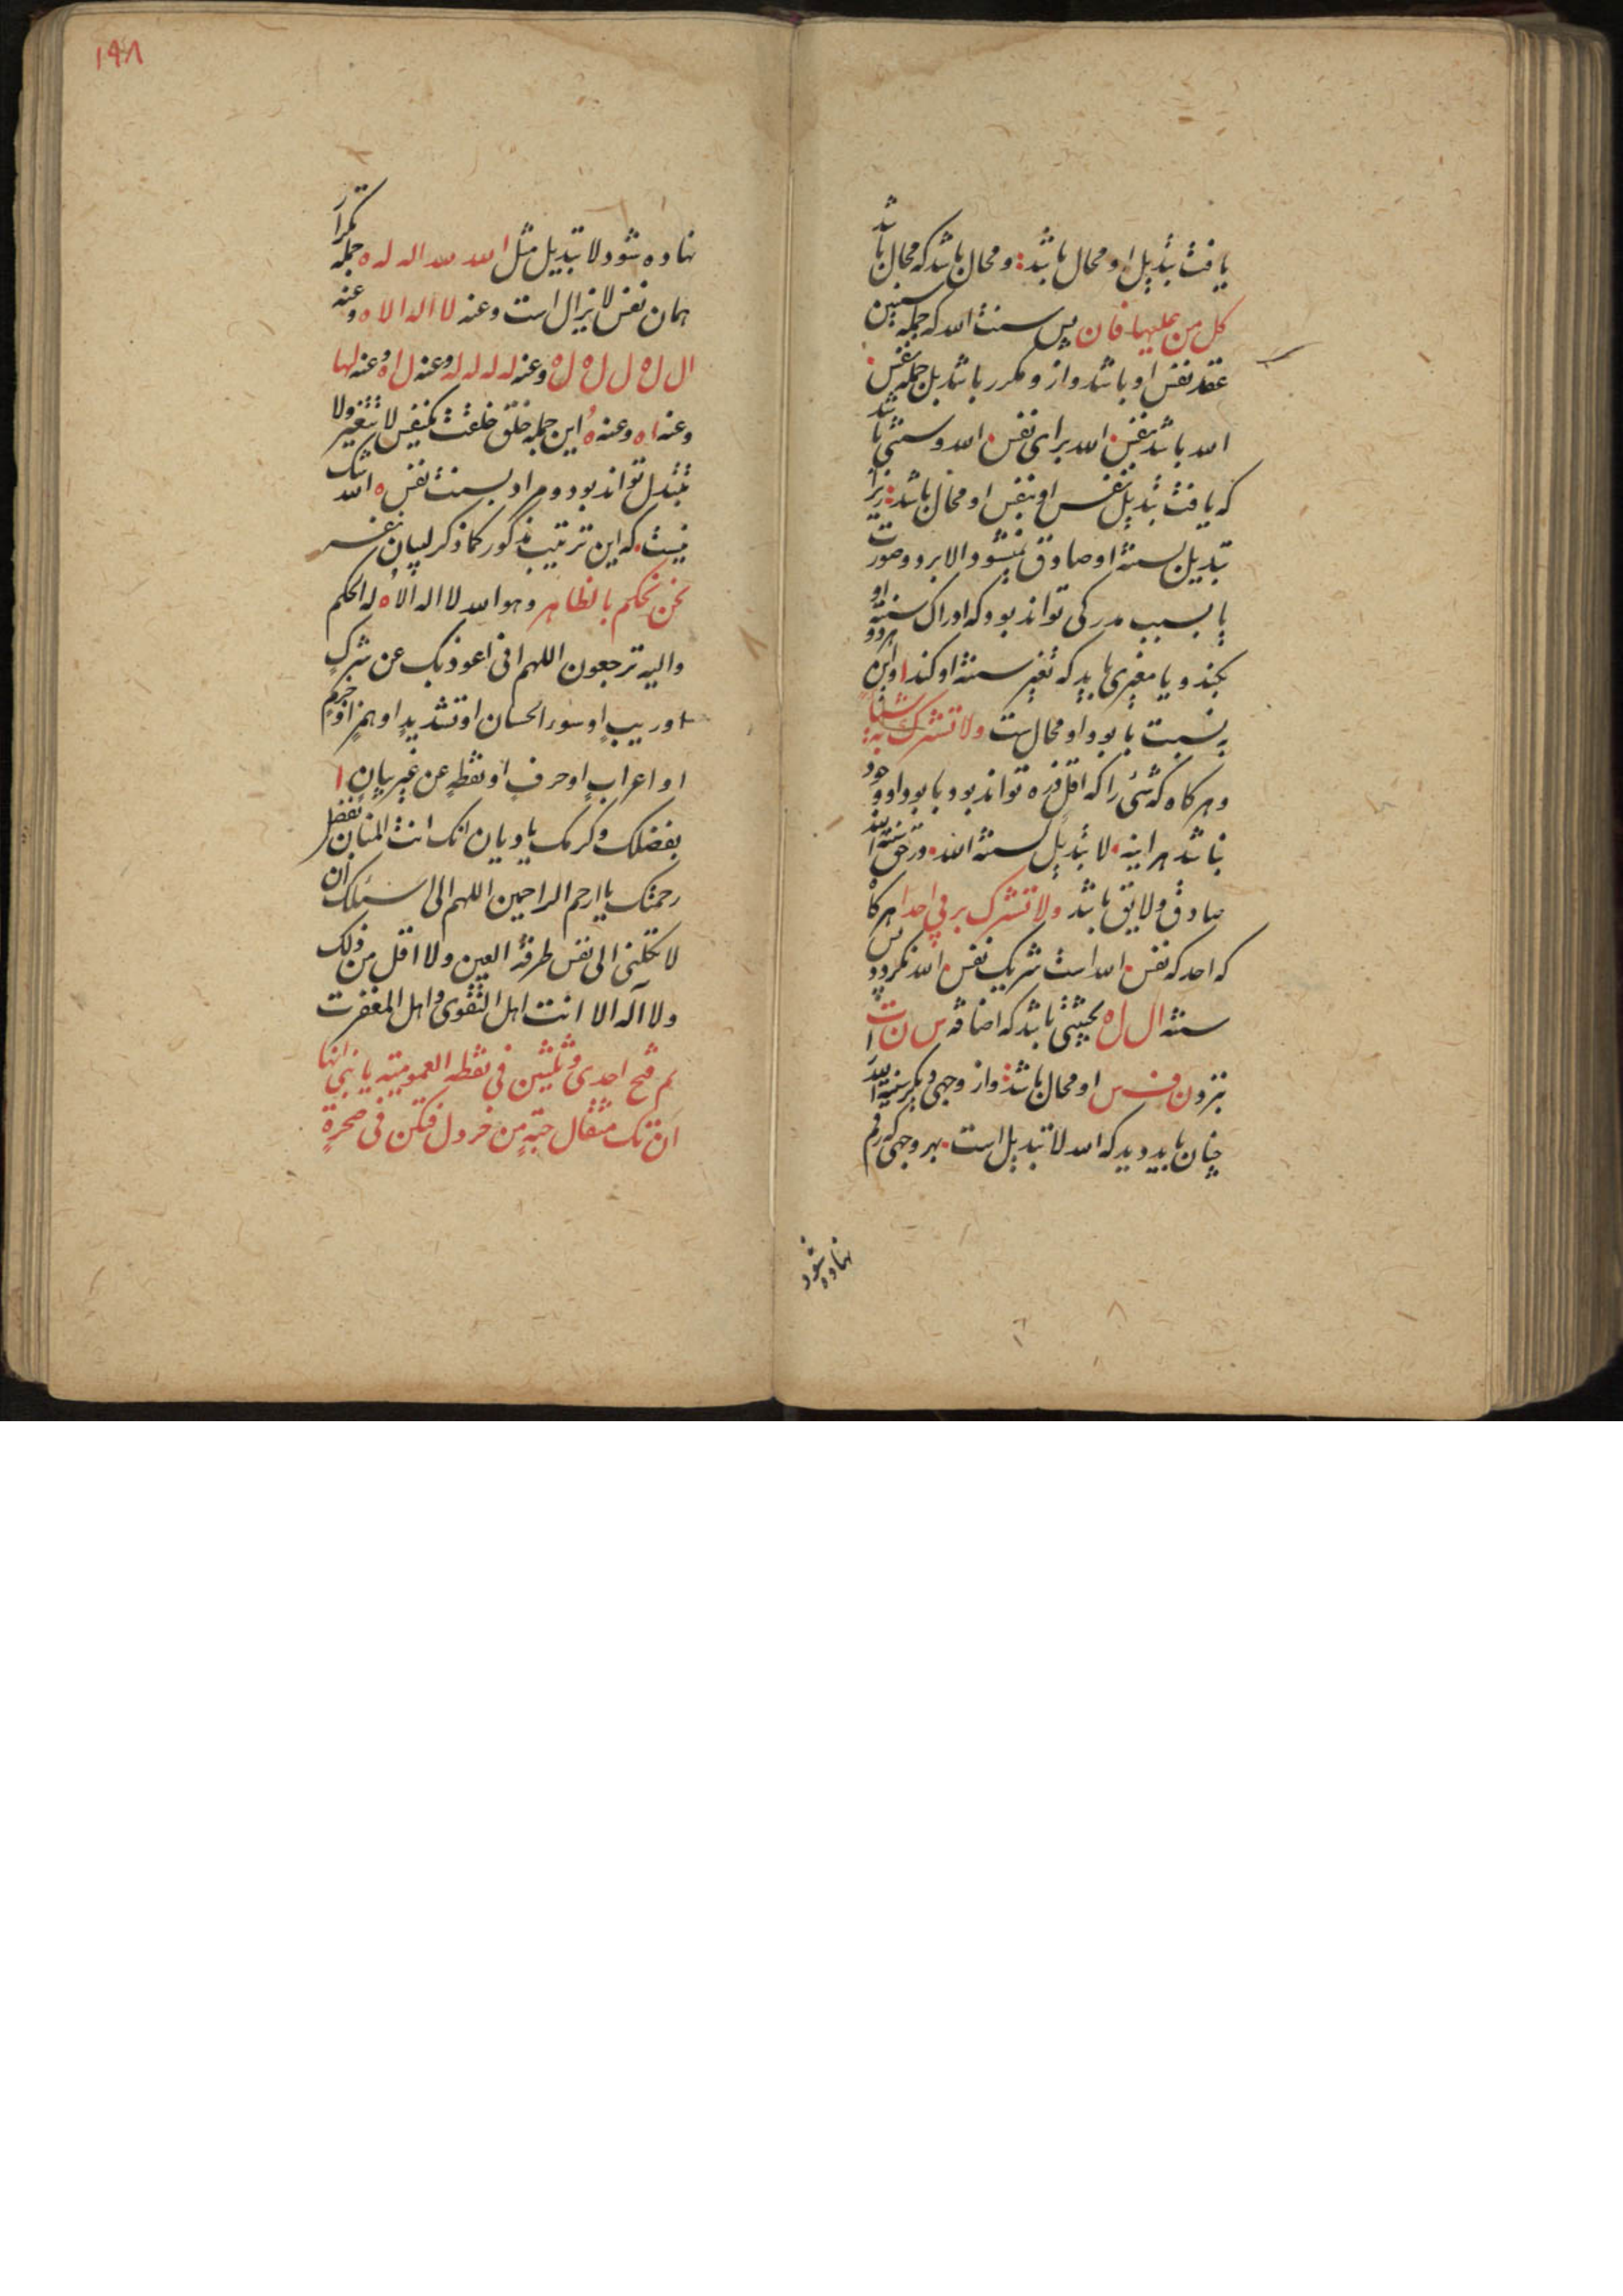 یافت تبدیل او محال باشد و محال باشد که محال باشد
کل من علیها فان پس سنت الله که جمله سنین
عقد نفس او باشد و از و مکرر باشد بل جمله نفس
الله باشد نفس الله برای نفس الله و سنتی باشد
که یافت تبدیل نفس او بنفس او محال باشد زیرا
تبدیل لسنته او صادق نیشود الا بر دو صورت
یا بسبب مدرکی تواند بود که ادراک سنته او
بکند و یا مغیری باید که تغیر سنته او کند و این هر دو
به نسبت با بود او محال است ولا تشرک به شیئا
و هر کاه که شیٔ را که اقل ذره تواند بود با بود او وجود
نباشد هر اینه لا تبدیل لسنته الله در حق سنته الله
صادق و لایق باشد ولا تشرک بربی احدا هر کاه
که احد که نفس الله است شریک نفس الله نکردد پس
سنته ال ل ه بحیثی باشد که اضافه س ن ت ا
بزو ن ف س او محال باشد و از وجهی دیکر سنته الله
چنان باید دید که الله لا تبدیل است بهر وجهی که رقم
نهاده شود
۱۹۸
نهاده شود لا تبدیل مثل الله لله اله له ه جمله تکرار
همان نفس لا یزال است وعنه لا اله الا ه وعنه
ال ل ه ل ل ه ل ه وعنه له له له له وعنه ل ا ه وعنه لها
وعنه ا ه وعنه ه این جمله خلق خلقت بنفس لا یتغیر ولا
یتبدل تواند بود و مراد بسنت نفس ه الله شک
نیست که این ترتیب مذکور کما ذکر لبیان نفس
نحن نحکم بالظاهر وهو الله لا اله الا ه له الحکم
والیه ترجعون اللهم انی اعوذ بک عن شرک
او ریب او سوء الحسان او تشدید او همز او جزم
او اعراب او حرف او نقطه عن غیر بیان ا
بفضلک وکرمک یا دیان انک انت المنان بفضل
رحمتک یا ارحم الراحمین اللهم انی اسئلک ان
لا تکلنی الی نفس طرفة العین ولا اقل من ذلک
ولا اله الا انت اهل التقوی واهل المغفرت
فتح احدی وثلثین فی نقطه العمومیته یا بنی انها
ان تک مثقال حبة من خردل فتکن فی صخرة